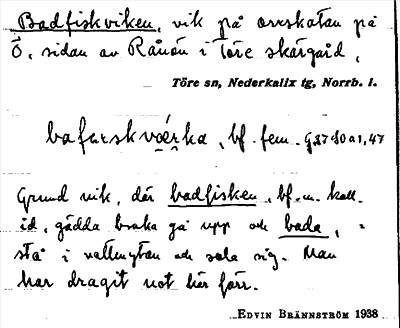 Badfiskviken, vik på orrskatan på
Ö. sidan av Rånön i Töre skärgård,
Töre sn, Nederkalix tg, Norrb. l.
bf. fem.
Grund vik, där badfisken, bf. m. koll.
id, gädda bruka gå upp och bada, =
stå i vattenytan och sola sig. Man
har dragit not här förr.
EDVIN BRÄNNSTRÖM 1938